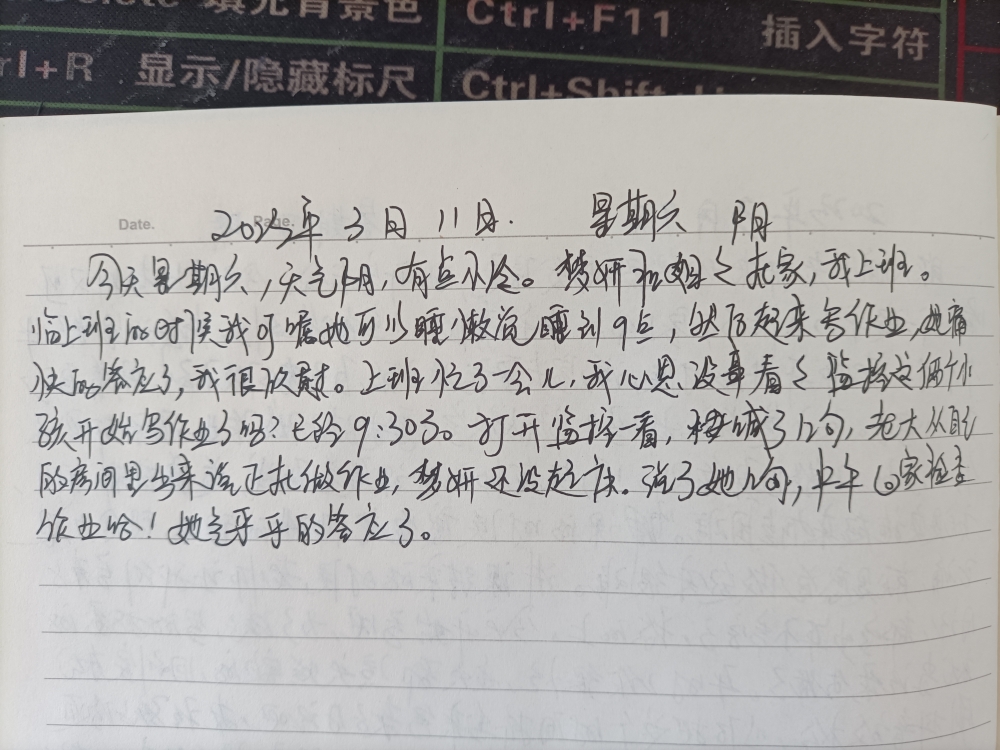 Delete 填充背景色 Ctrl+F11 插入字符
rl+R 显示/隐藏标尺 Ctrl+Shift+
Date. Page.
2023年3月11日. 星期六 阴
今天星期六,天气阴,有点小冷。梦妍和姐姐在家,我上班。
临上班的时候我叮嘱她可以睡懒觉睡到9点,然后起来写作业,她痛
快的答应了,我很欣慰。上班忙了一会儿,我心思没事看看监控这俩个小
孩开始写作业了吗?已经9:30了。打开监控一看,喊了几句,老大从自己
的房间里出来说正在做作业,梦妍还没起床。说了她几句,中午回家检查
作业哈!她气乎乎的答应了。